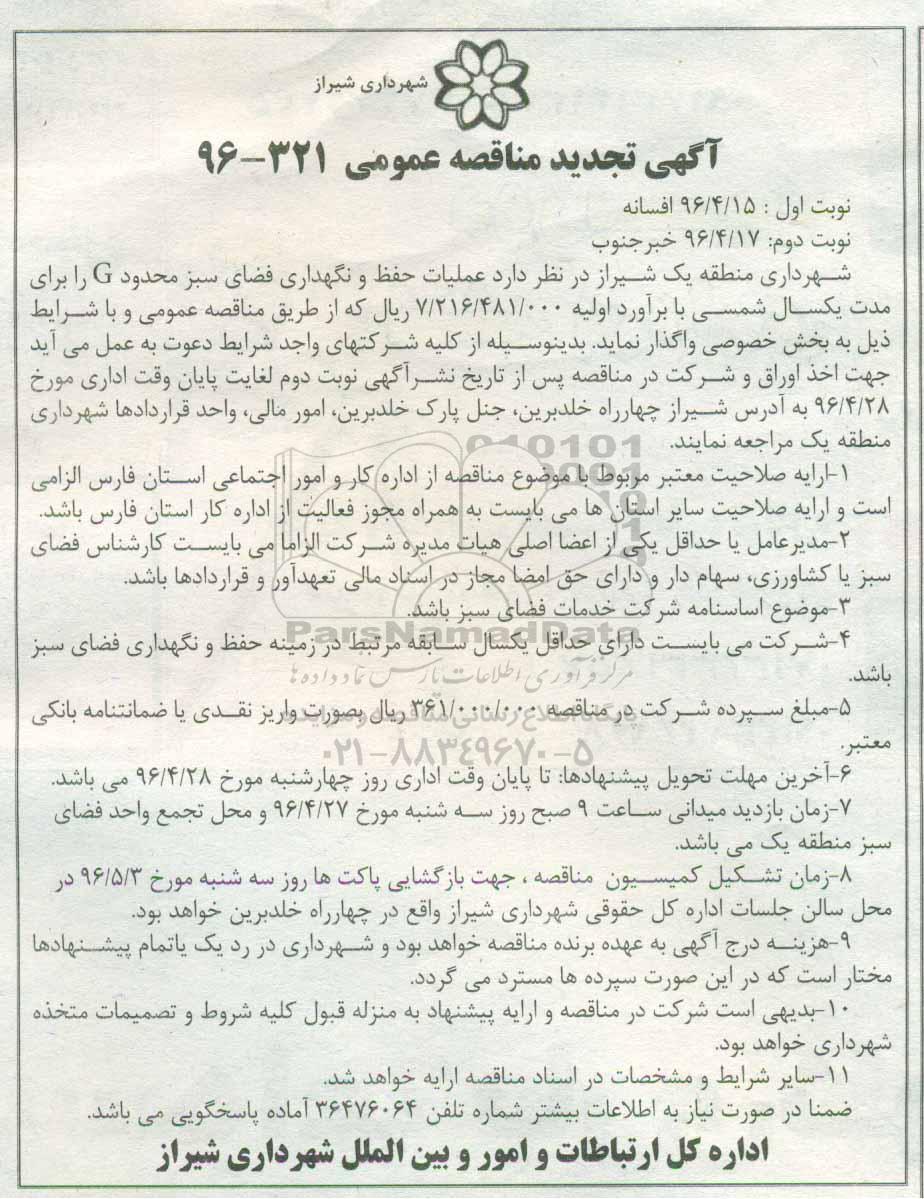 شهرداری شیراز
آگهی تجدید مناقصه عمومی ۳۲۱-۹۶
نوبت اول : ۹۶/۴/۱۵ افسانه
نوبت دوم: ۹۶/۴/۱۷ خبرجنوب
شهرداری منطقه یک شیراز در نظر دارد عملیات حفظ و نگهداری فضای سبز محدود G را برای
مدت یکسال شمسی با برآورد اولیه ۷/۲۱۶/۴۸۱/۰۰۰ ریال که از طریق مناقصه عمومی و با شرایط
ذیل به بخش خصوصی واگذار نماید. بدینوسیله از کلیه شرکتهای واجد شرایط دعوت به عمل می آید
جهت اخذ اوراق و شرکت در مناقصه پس از تاریخ نشرآگهی نوبت دوم لغایت پایان وقت اداری مورخ
۹۶/۴/۲۸ به آدرس شیراز چهارراه خلدبرین، جنل پارک خلدبرین، امور مالی، واحد قراردادها شهرداری
منطقه یک مراجعه نمایند.
۱-ارایه صلاحیت معتبر مربوط با موضوع مناقصه از اداره کار و امور اجتماعی استان فارس الزامی
است و ارایه صلاحیت سایر استان ها می بایست به همراه مجوز فعالیت از اداره کار استان فارس باشد.
۲-مدیرعامل یا حداقل یکی از اعضا اصلی هیات مدیره شرکت الزاما می بایست کارشناس فضای
سبز یا کشاورزی، سهام دار و دارای حق امضا مجاز در اسناد مالی تعهدآور و قراردادها باشد.
۳-موضوع اساسنامه شرکت خدمات فضای سبز باشد.
ParsNamadData
۴-شرکت می بایست دارای حداقل یکسال سابقه مرتبط در زمینه حفظ و نگهداری فضای سبز
باشد.
مرکز فرآوری اطلاعات پارس نماد داده ها
۵-مبلغ سپرده شرکت در مناقصه ۳۶۱/۰۰۰/۰۰۰ ریال بصورت واریز نقدی یا ضمانتنامه بانکی
معتبر.
۰۲۱-۸۸۳۴۹۶۷۰-۵
۶-آخرین مهلت تحویل پیشنهادها: تا پایان وقت اداری روز چهارشنبه مورخ ۹۶/۴/۲۸ می باشد.
۷-زمان بازدید میدانی ساعت ۹ صبح روز سه شنبه مورخ ۹۶/۴/۲۷ و محل تجمع واحد فضای
سبز منطقه یک می باشد.
۸-زمان تشکیل کمیسیون مناقصه ، جهت بازگشایی پاکت ها روز سه شنبه مورخ ۹۶/۵/۳ در
محل سالن جلسات اداره کل حقوقی شهرداری شیراز واقع در چهارراه خلدبرین خواهد بود.
۹-هزینه درج آگهی به عهده برنده مناقصه خواهد بود و شهرداری در رد یک یاتمام پیشنهادها
مختار است که در این صورت سپرده ها مسترد می گردد.
۱۰-بدیهی است شرکت در مناقصه و ارایه پیشنهاد به منزله قبول کلیه شروط و تصمیمات متخذه
شهرداری خواهد بود.
۱۱-سایر شرایط و مشخصات در اسناد مناقصه ارایه خواهد شد.
ضمنا در صورت نیاز به اطلاعات بیشتر شماره تلفن ۳۶۴۷۶۰۶۴ آماده پاسخگویی می باشد.
اداره کل ارتباطات و امور و بین الملل شهرداری شیراز